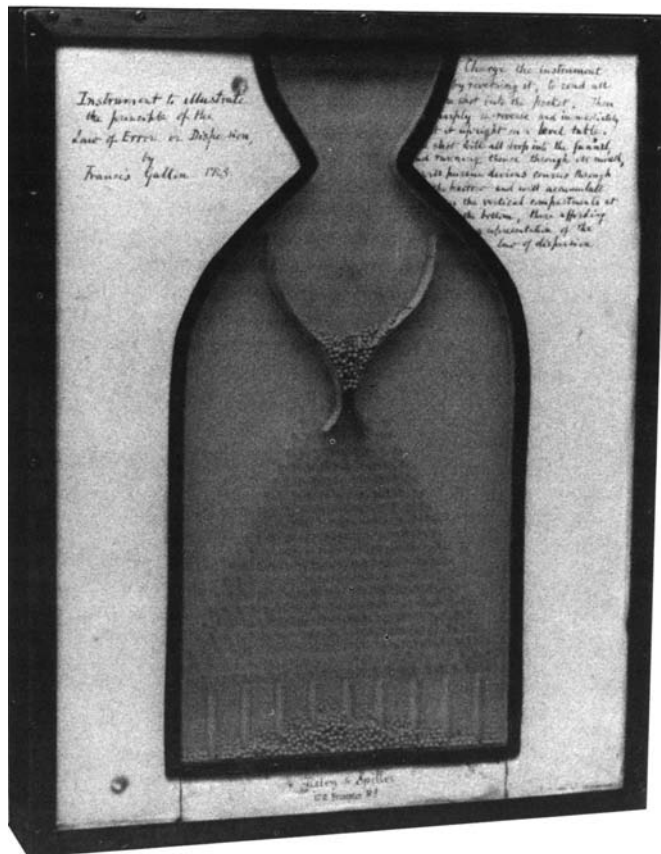 Instrument to illustrate
the principle of the
Law of Error or Dispersion,
by
Francis Galton FRS
Charge the instrument
by reversing it, to send all
shot into the pocket. Then
sharply re-reverse and immediately
set it upright on a level table.
shot will all drop into the funnel,
and running thence through its mouth,
will pursue devious courses through
the harrow and will accumulate
in the vertical compartments at
the bottom, there affording
a representation of the
law of dispersion
Tisley & Spiller
172 Brompton Rd